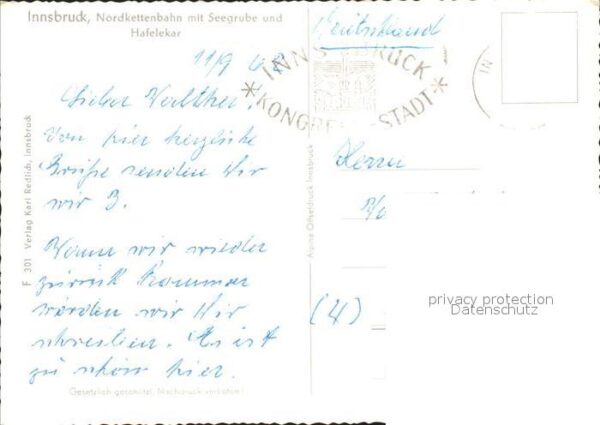 Innsbruck, Nordkettenbahn mit Seegrube und
Hafelekar
11/9
Lieber Walther!
Von hier herzliche
Grüße senden Dir
wir 3.
Wenn wir wieder
zurück kommen
werden wir Dir
schreiben. Es ist
zu schön hier.
Gesetzlich geschützt, Nachdruck verboten!
F 301 Verlag Karl Redlich, Innsbruck
Alpine Offsetdruck Innsbruck
Deutschland
INNSBRUCK
* KONGRESSTADT *
IN
Herrn
(4)
privacy protection
Datenschutz